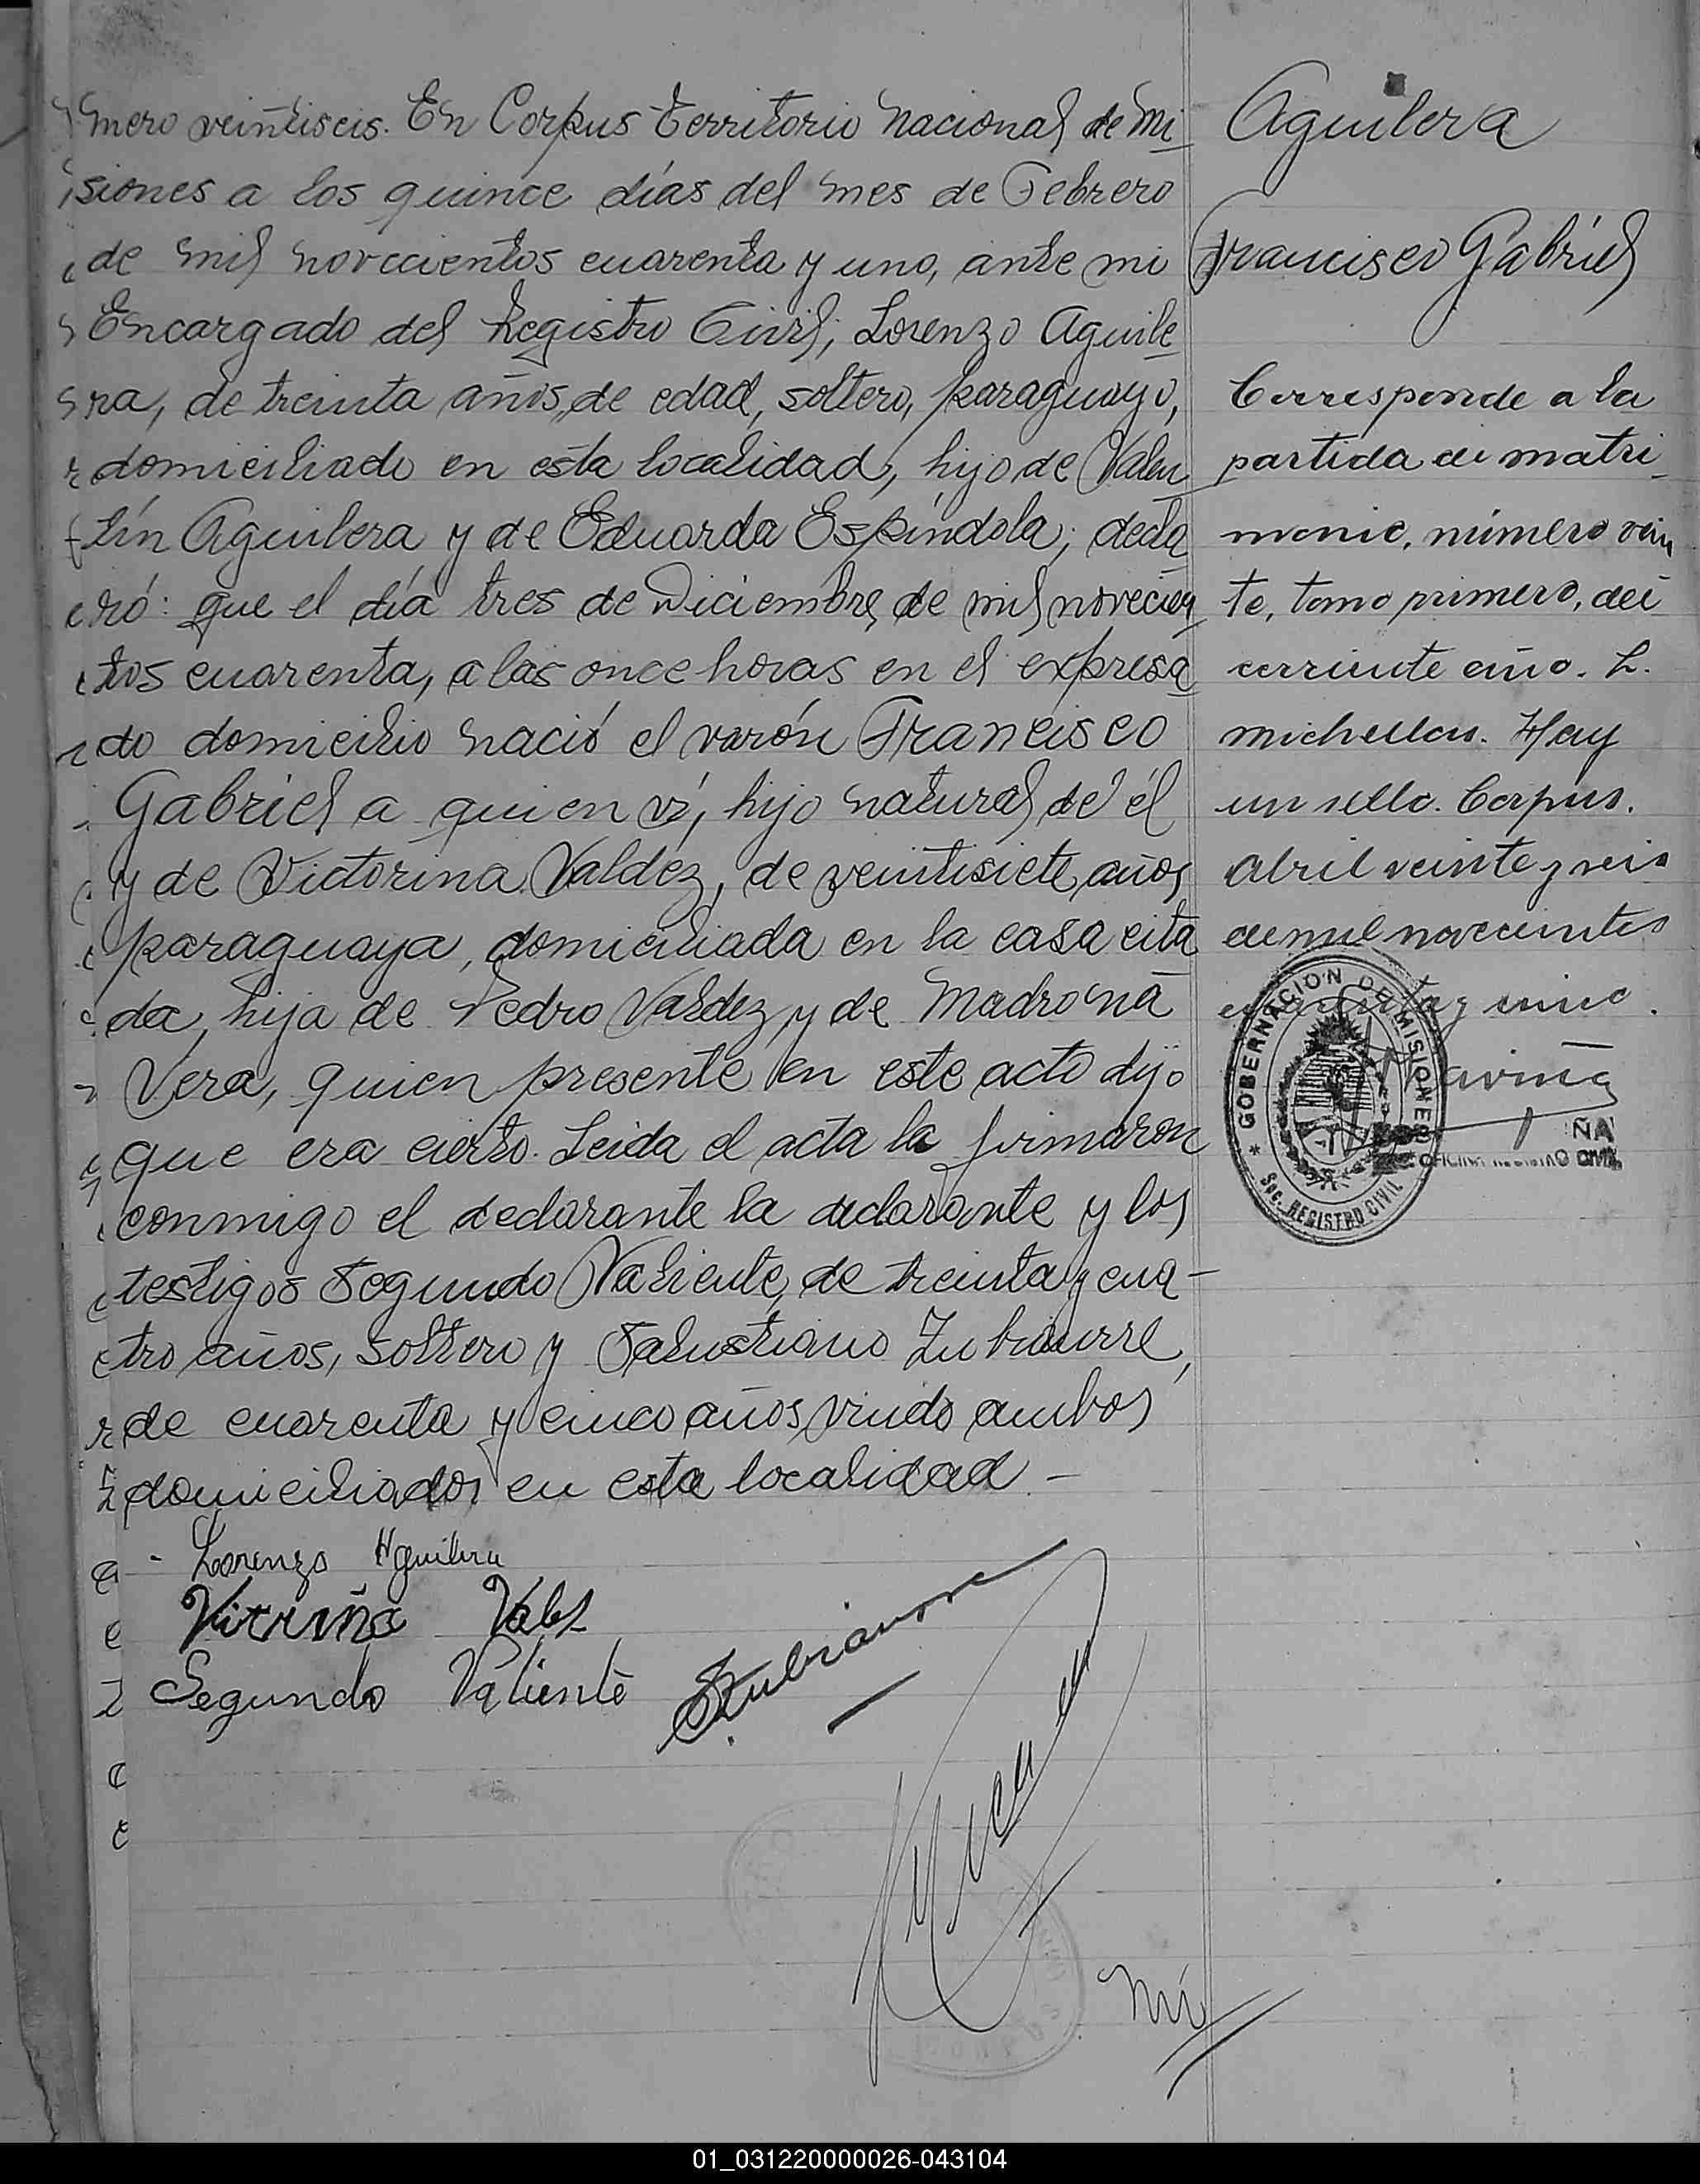 mero veintiseis. En Corpus Territorio Nacional de Mi
siones a los quince días del mes de Febrero
de mil novecientos cuarenta y uno, ante mi
Encargado del Registro Civil; Lorenzo Aguile
ra, de treinta años, de edad, soltero, paraguayo,
domiciliado en esta localidad, hijo de Valen
tín Aguilera y de Eduarda Espíndola; decla
ró: que el día tres de Diciembre, de mil novecien
tos cuarenta, a las once horas en el expresa
do domicilio nació el varón Francisco
Gabriel a quien ví, hijo natural de él
y de Victorina Valdéz, de veintisiete años
paraguaya, domiciliada en la casa cita
da, hija de Pedro Valdez y de Madrona
Vera, quien presente en este acto dijo
que era cierto. Leida el acta la firmaron
conmigo el declarante la declarante y los
testigos Segundo Valiente, de treinta y cua-
tro años, soltero y Salustiano Zubiaurre,
de cuarenta y cinco años viudo ambos
domiciliados en esta localidad -
Lorenzo Aguilera
Segundo Valiente
S. Zubiaurre
Aguilera
Francisco Gabriel
Corresponde a la
partida de matri
monio, número vein
te, tomo primero, del
corriente año. L.
Michellon. Hay
un sello. Corpus.
Abril veinte y seis
de mil novecientos
cuarenta y uno.
GOBERNACION DE MISIONES
Sec. REGISTRO CIVIL
ÑA
OFICINA REGISTRO CIVIL
01_031220000026-043104